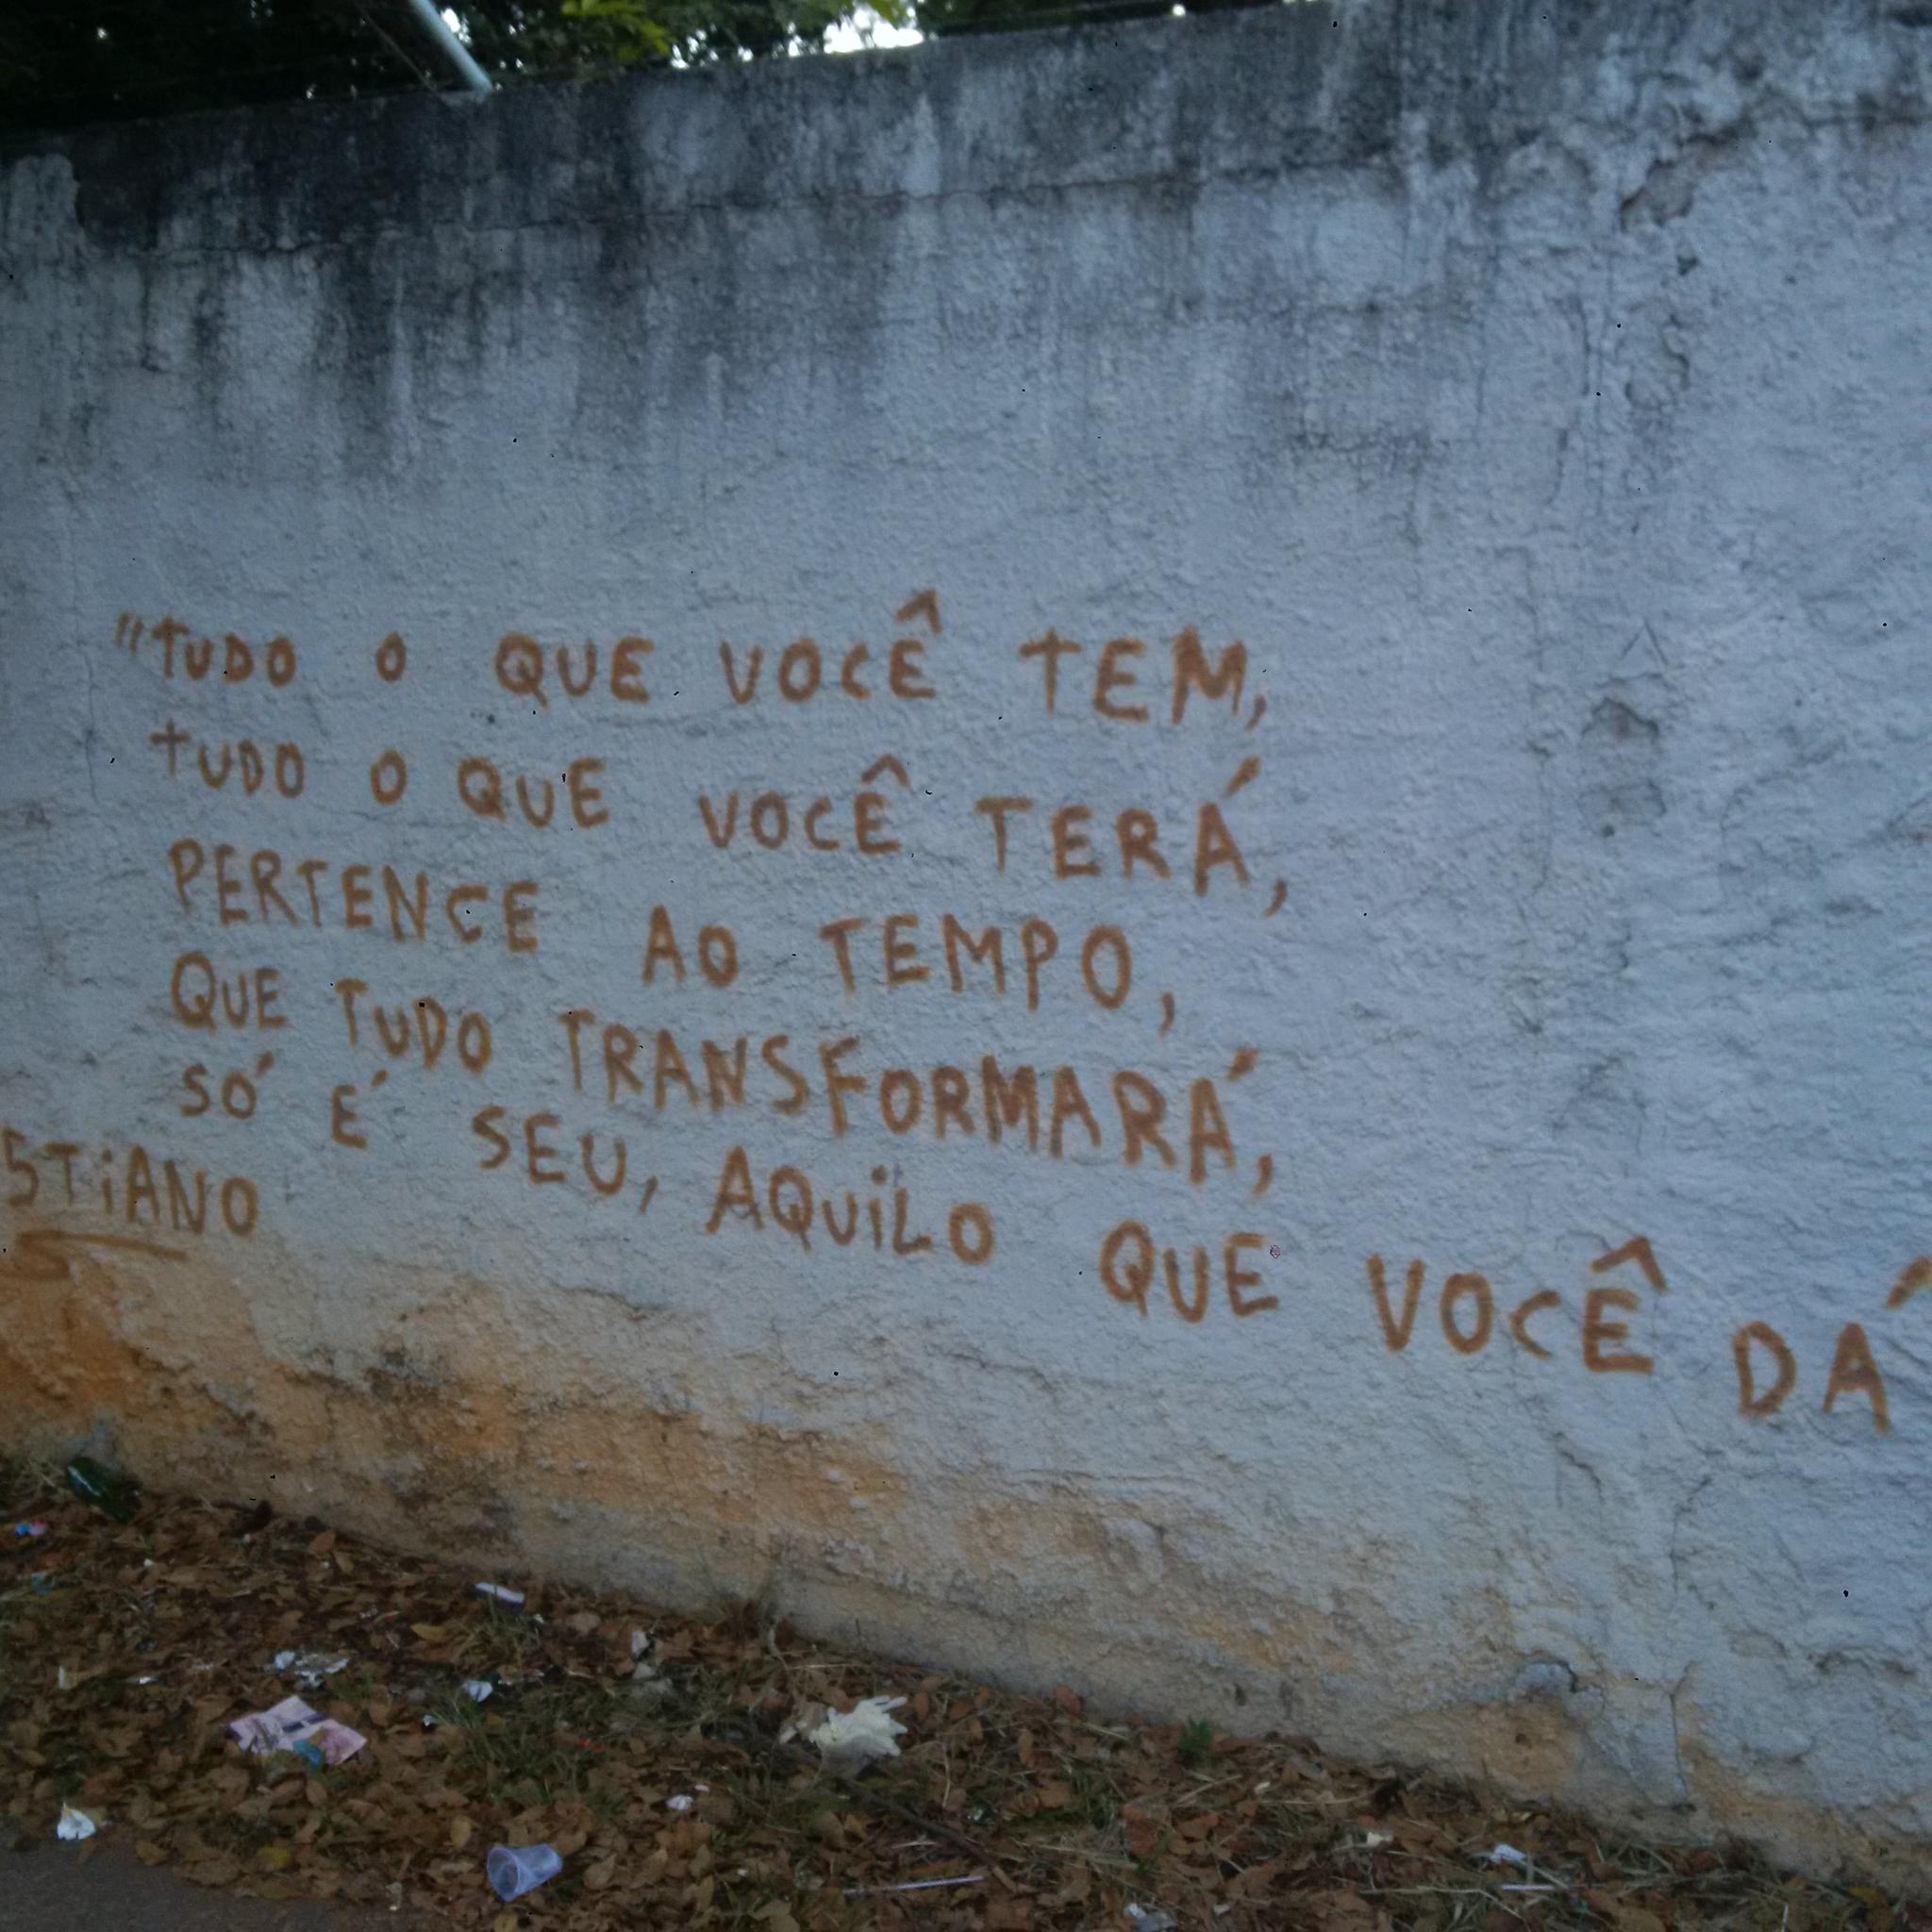 "TUDO O QUE VOCÊ TEM,
TUDO O QUE VOCÊ TERÁ,
PERTENCE AO TEMPO,
QUE TUDO TRANSFORMARÁ,
SÓ É SEU, AQUILO QUE VOCÊ DÁ
STIANO